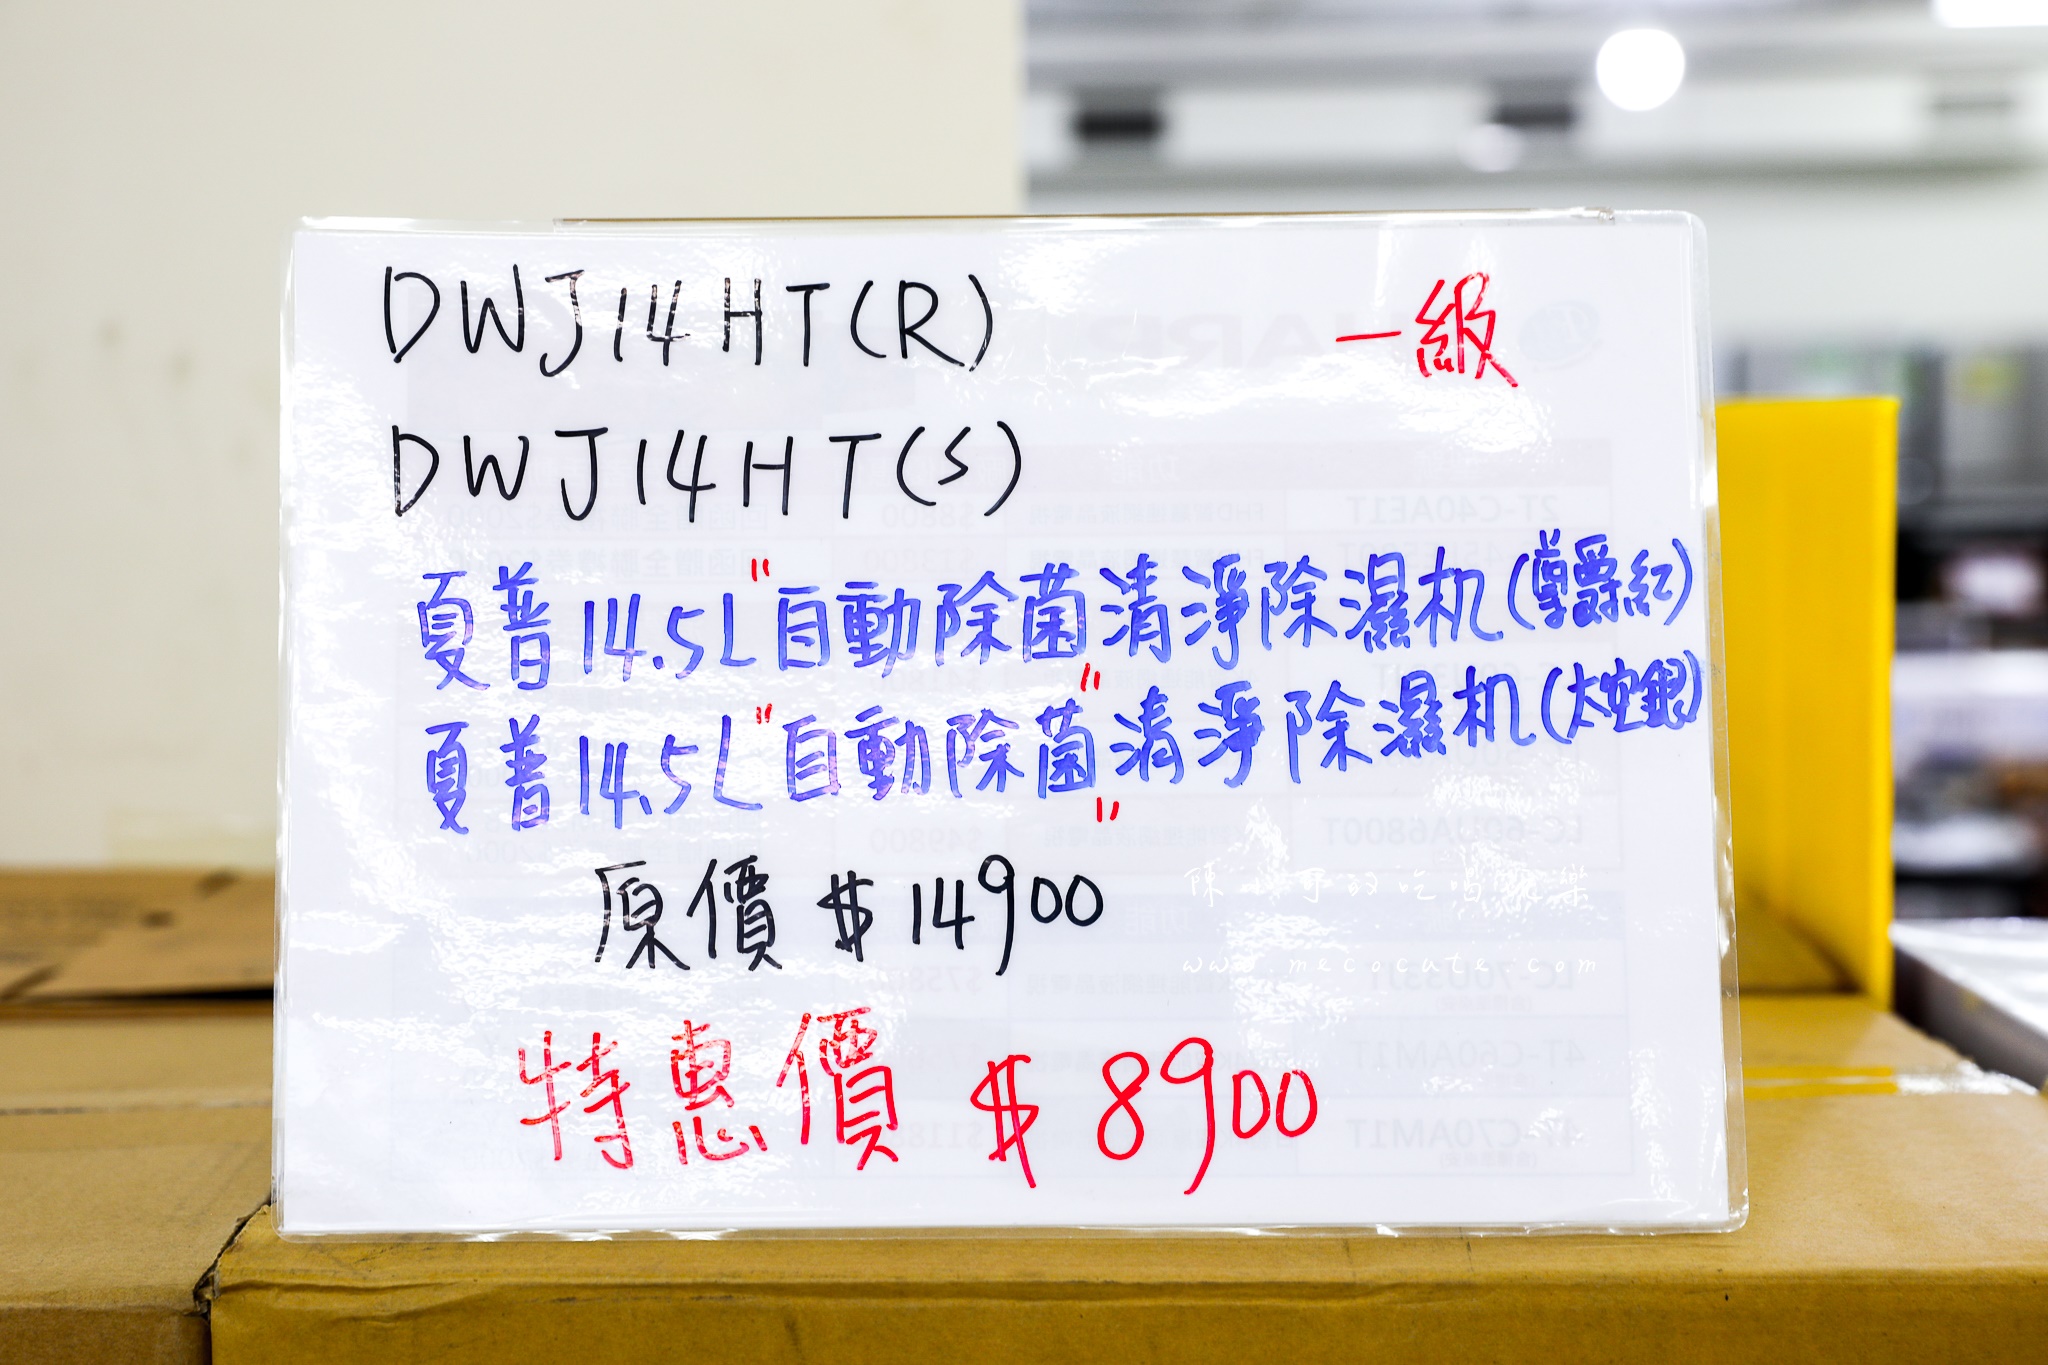 DWJ14HT(R)
一級
DWJ14HT(S)
夏普14.5L"自動除菌"清淨除濕机(尊爵紅)
夏普14.5L"自動除菌"清淨除濕机(太空銀)
原價 $14900
www.mecocute.com
特惠價 $8900